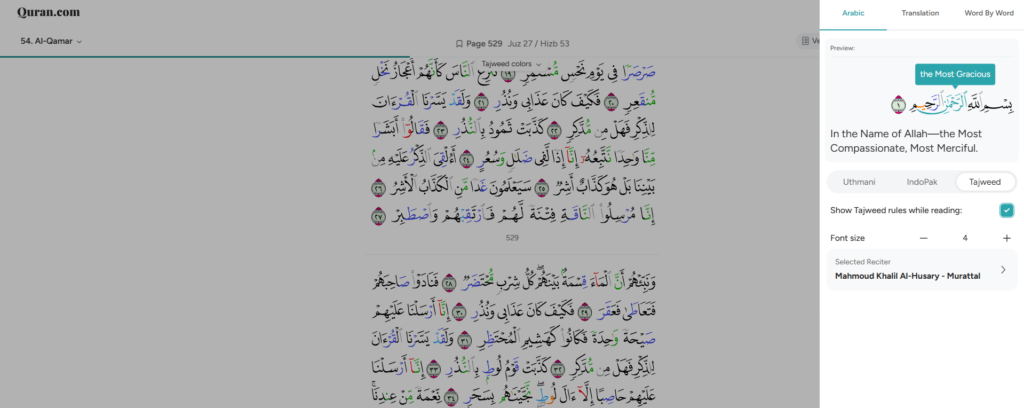 Quran.com
54. Al-Qamar
Page 529 Juz 27 / Hizb 53
Tajweed colors
صَرْصَرًا فِي يَوْمِ نَحْسٍ مُّسْتَمِرٍّ ١٩ تَنزِعُ ٱلنَّاسَ كَأَنَّهُمْ أَعْجَازُ نَخْلٍ
مُّنقَعِرٍ ٢٠ فَكَيْفَ كَانَ عَذَابِي وَنُذُرِ ٢١ وَلَقَدْ يَسَّرْنَا ٱلْقُرْءَانَ
لِلذِّكْرِ فَهَلْ مِن مُّدَّكِرٍ ٢٢ كَذَّبَتْ ثَمُودُ بِٱلنُّذُرِ ٢٣ فَقَالُوٓا۟ أَبَشَرًا
مِّنَّا وَٰحِدًا نَّتَّبِعُهُۥٓ إِنَّآ إِذًا لَّفِي ضَلَٰلٍ وَسُعُرٍ ٢٤ أَءُلْقِيَ ٱلذِّكْرُ عَلَيْهِ مِنۢ
بَيْنِنَا بَلْ هُوَ كَذَّابٌ أَشِرٌ ٢٥ سَيَعْلَمُونَ غَدًا مَّنِ ٱلْكَذَّابُ ٱلْأَشِرُ ٢٦
إِنَّا مُرْسِلُوا۟ ٱلنَّاقَةِ فِتْنَةً لَّهُمْ فَٱرْتَقِبْهُمْ وَٱصْطَبِرْ ٢٧
529
وَنَبِّئْهُمْ أَنَّ ٱلْمَآءَ قِسْمَةٌۢ بَيْنَهُمْ ۖ كُلُّ شِرْبٍ مُّحْتَضَرٌ ٢٨ فَنَادَوْا۟ صَاحِبَهُمْ
فَتَعَاطَىٰ فَعَقَرَ ٢٩ فَكَيْفَ كَانَ عَذَابِي وَنُذُرِ ٣٠ إِنَّآ أَرْسَلْنَا عَلَيْهِمْ
صَيْحَةً وَٰحِدَةً فَكَانُوا۟ كَهَشِيمِ ٱلْمُحْتَظِرِ ٣١ وَلَقَدْ يَسَّرْنَا ٱلْقُرْءَانَ
لِلذِّكْرِ فَهَلْ مِن مُّدَّكِرٍ ٣٢ كَذَّبَتْ قَوْمُ لُوطٍۭ بِٱلنُّذُرِ ٣٣ إِنَّآ أَرْسَلْنَا
عَلَيْهِمْ حَاصِبًا إِلَّآ ءَالَ لُوطٍ ۖ نَّجَّيْنَٰهُم بِسَحَرٍ ٣٤ نِّعْمَةً مِّنْ عِندِنَا ۚ
Arabic Translation Word By Word
Preview:
the Most Gracious
بِسْمِ ٱللَّهِ ٱلرَّحْمَٰنِ ٱلرَّحِيمِ ١
In the Name of Allah—the Most
Compassionate, Most Merciful.
Uthmani IndoPak Tajweed
Show Tajweed rules while reading:
Font size − 4 +
Selected Reciter
Mahmoud Khalil Al-Husary - Murattal